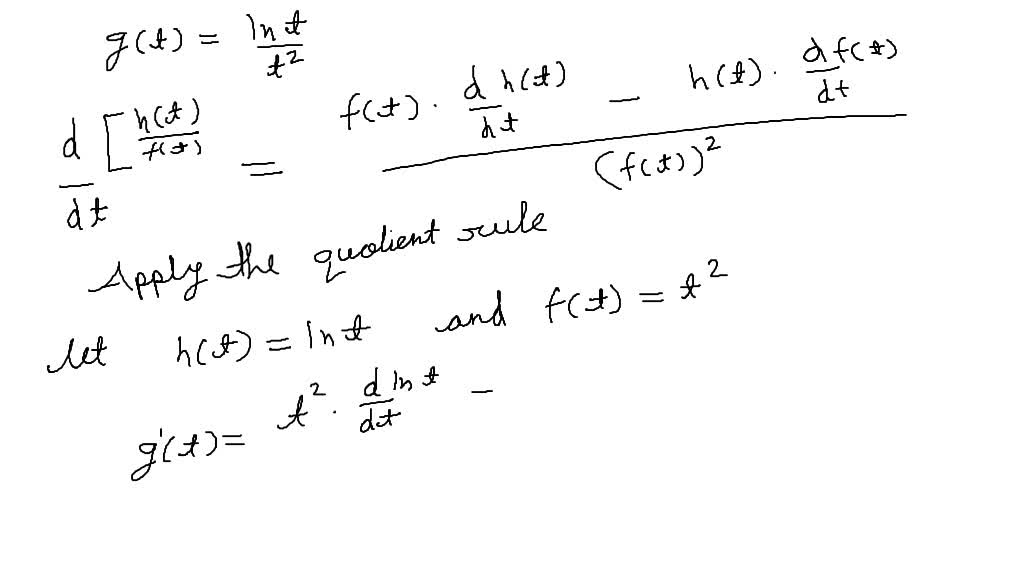 g(t) = ln t / t²
d/dt [h(t)/f(t) = f(t) · d h(t)/ht − h(t) · d f(t)/dt / (f(t))²
Apply the quolient rule
let h(t) = ln t and f(t) = t²
g'(t) = t² · d ln t/dt −